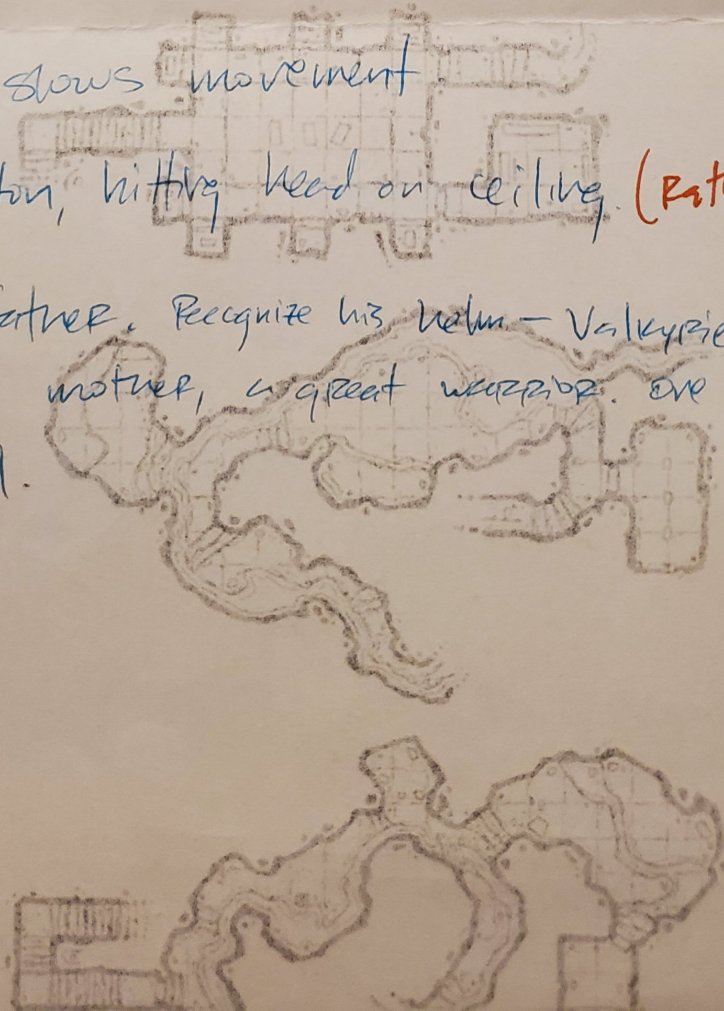 slows movement
ton, hitting head on ceiling. (Rat
ather. Recognize his helm – Valkyrie
mother, a great warrior. one